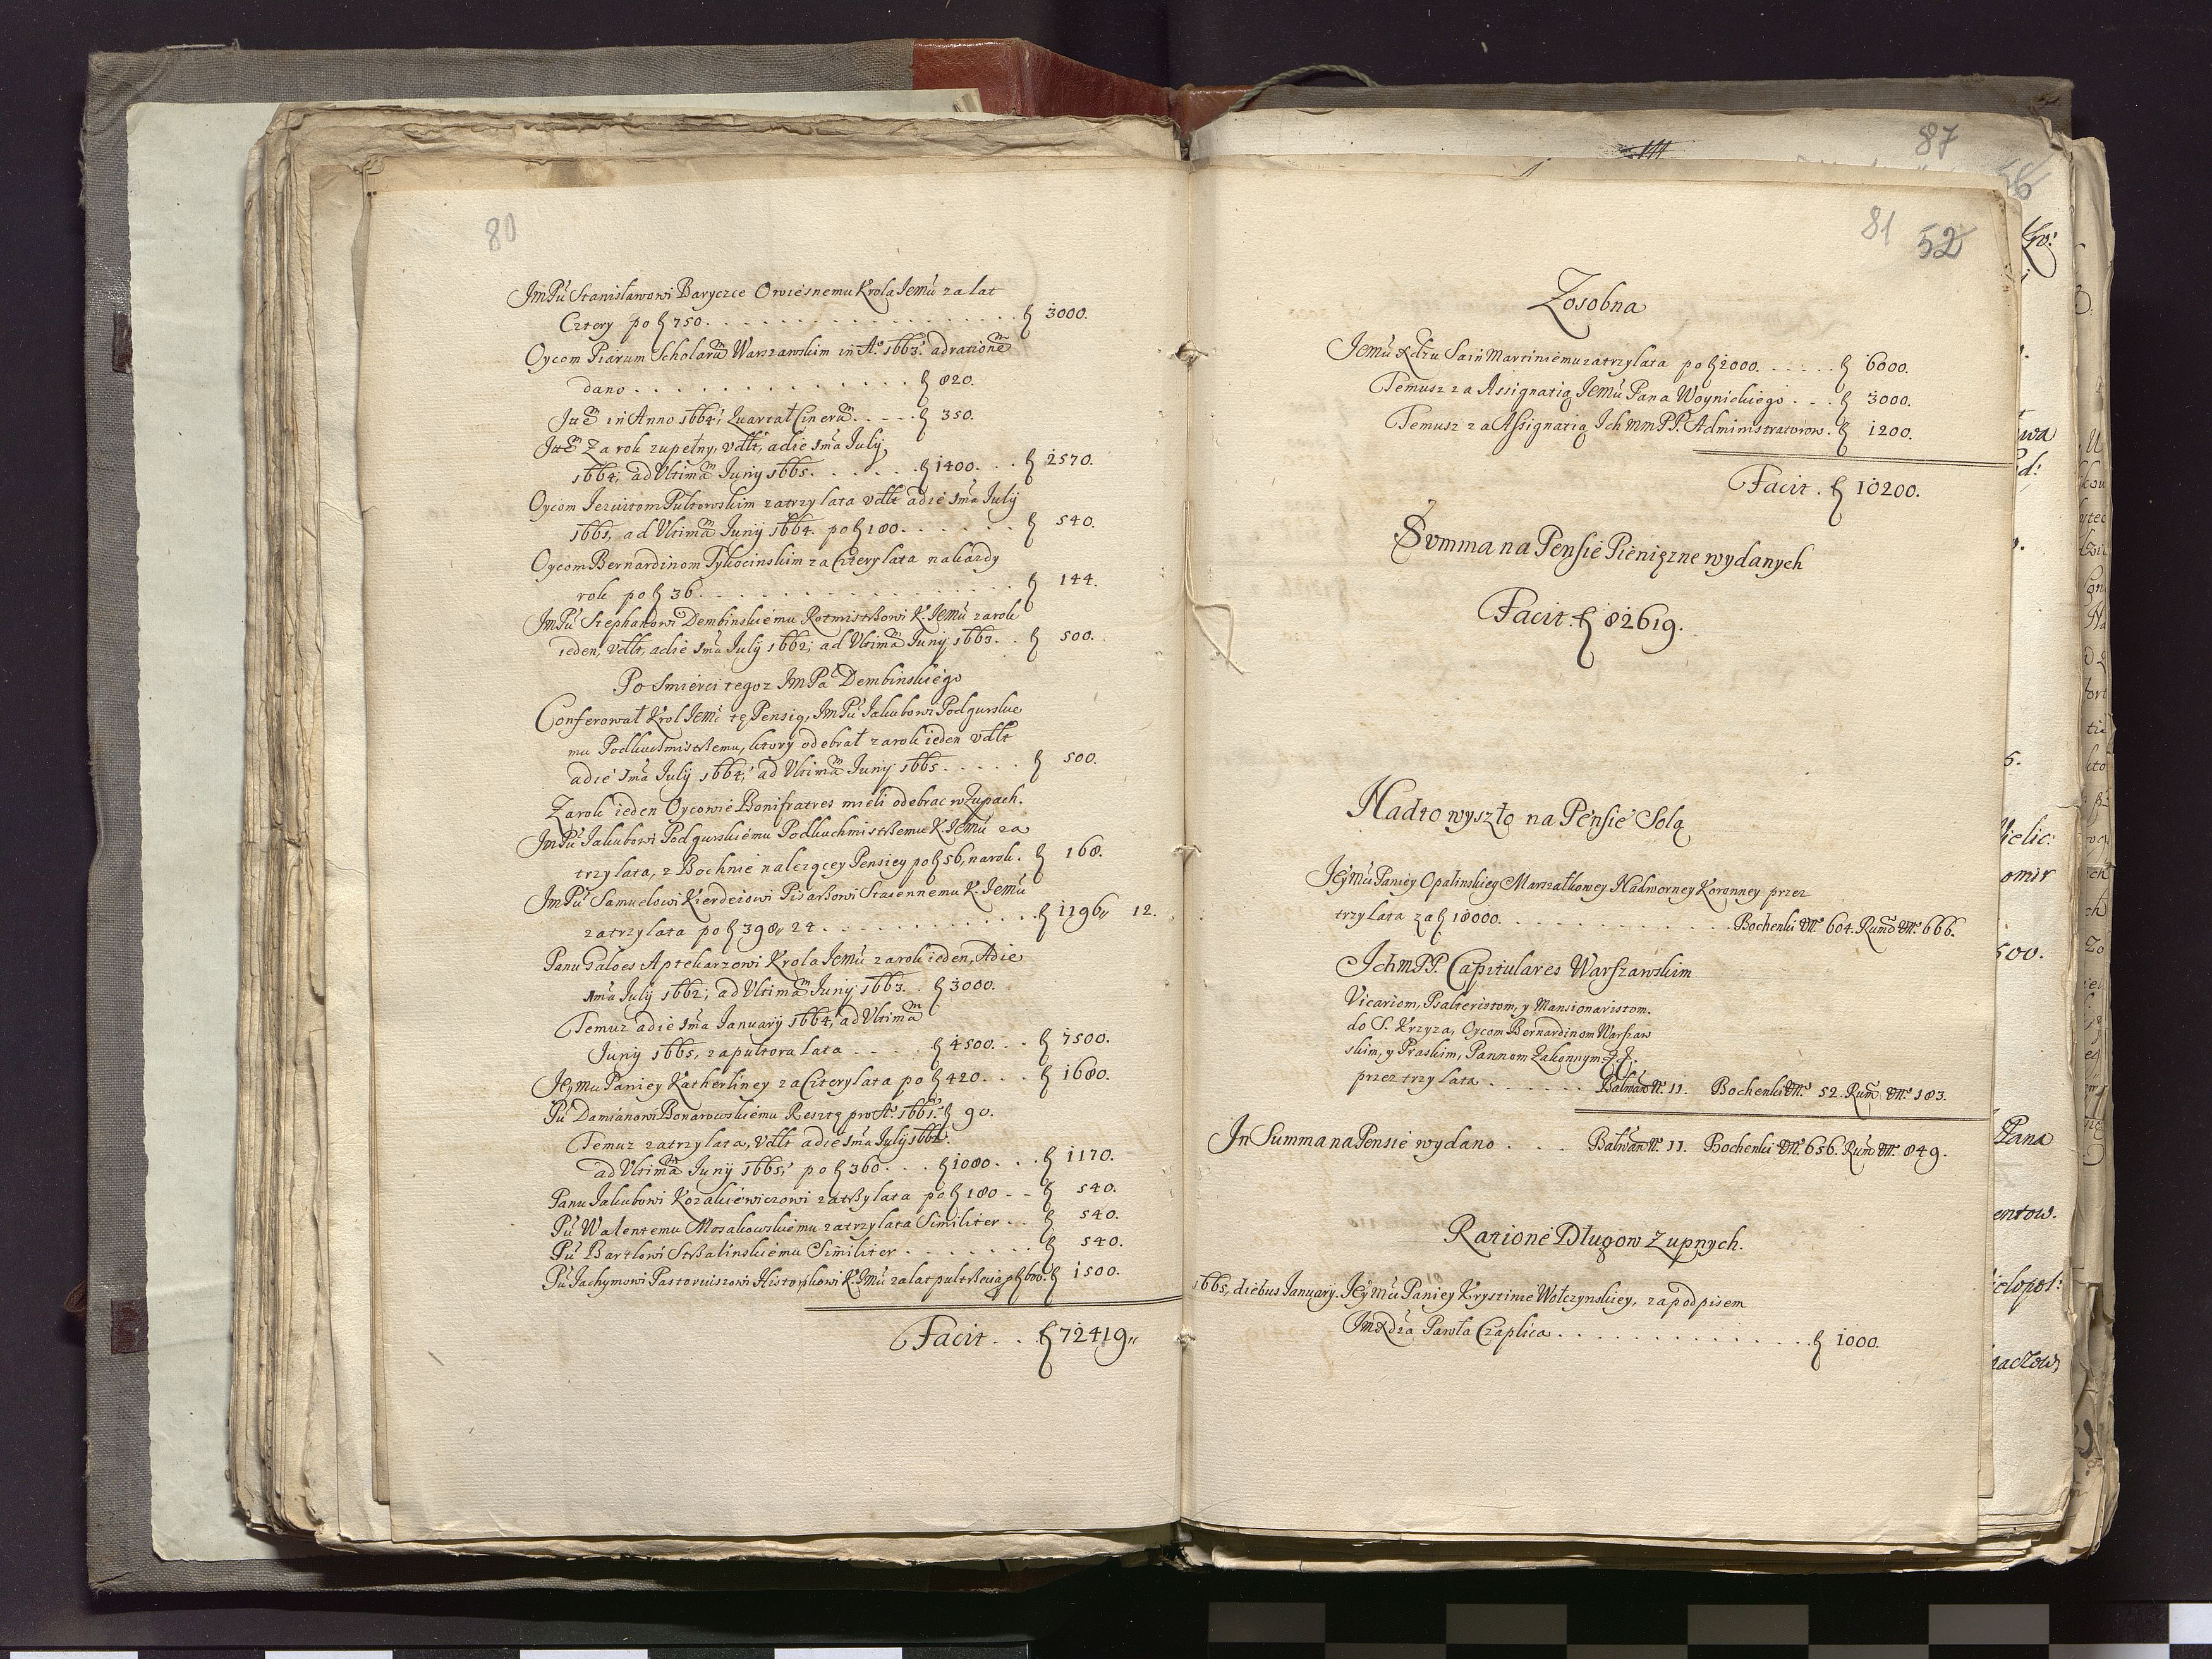 80
JmPu Stanisławowi Baryczce Owiesnemu Krola Jemu za lat
Cztery po f 750. . . . . . f 3000.
Oycom Piarum Scholarum Warszawskim in A° 1663. ad rationem
dano . . . . . . f 820.
in Anno 1664, Quartał Cinerum . . . f 350.
Za rok zupełny, vdlt, a die 1ma July
1664, ad Vltimam Juny 1665. . . . f 1400. . . f 2570.
Oycom Jezuitom Pultowskim za trzy lata vdlt a die 1ma July
1661, ad Vltimam Juny 1664. po f 180. . . . . f 540.
Oycom Bernardinom Tykocinskim za Cztery lata na kazdy
rok po f 36. . . . . . f 144.
JmPu Stephanowi Dembinskiemu Rotmistrzowi K. Jemu za rok
ieden, vdlt, a die 1ma July 1662; ad Vltimam Juny 1663. . f 500.
Po Smierci tegoz JmPa Dembinskiego
Conferował Krol Jemc tę Pensią, JmPu Jakubowi Podgurskie
mu Podkuchmistrzemu, ktory odebrał za rok ieden vdlt
a die 1ma July 1664, ad Vltimam Juny 1665. . . . . f 500.
Za rok ieden Oycowie Bonifratres mieli odebrac w Zupach.
JmPu Jakubowi Podgurskiemu Podkuchmistrzemu K. Jemu za
trzy lata, z Bochnie nalezącey Pensiey po f 56, na rok. f 168.
JmPu Samuelowi Kierdeiowi Pisarzowi Staiennemu K. Jemu
za trzy lata po f 398,, 24 . . . . . . f 1196,, 12.
Panu Galoes Aptekarzowi Krola Jemu za rok ieden, A die
1ma July 1662; ad Vltimam Juny 1663. . f 3000.
Temuz a die 1ma January 1664, ad Vltimam
Juny 1665, za pultora lata . . . . f 4500. . . f 7500.
Jeymu Paniey Katherliney za Cztery lata po f 420. . . f 1680.
Pu Damianowi Bonarowskiemu Resztę pro A° 1661. f 90.
Temuz za trzy lata, vdlt a die 1ma July 1662.
ad Vltimam Juny 1665, po f 360. . . f 1080. . . f 1170.
Panu Jakubowi Kozakiewiczowi za trzy lata po f 180 . . f 540.
Pu Walentemu Mosakowskiemu za trzy lata Similiter . . f 540.
Pu Bartłowi Strzalinskiemu Similiter . . . . . f 540.
Pu Jachymowi Pastoriuszowi Historykowi K. Jmu za lat pultrzecia po f 600. f 1500.
Facit . . f 72419,,
87
56
81 52
Zosobna
Jemu Xdzu Sain Martiniemu za trzy lata po f 2000. . . . . f 6000.
Temusz za Assignatią Jemu Pana Woynickiego . . . f 3000.
Temusz za Assignatią Jch mm PP. Administratorow. f 1200.
Facit . f 10200.
Summa na Pensie Pieniężne wydanych
Facit. f 82619.
Nadto wyszło na Pensie Solą
Jeymu Paniey Opalinskiey Marszałkowey Nadworney Koronney przez
trzy lata za f 18000. . . . . . Bochenki № 604. Rumu № 666.
Jchm PP. Capitulares Warszawskim
Vicariom, Psalteristom, y Mansionaristom.
do S. Krzyza, Oycom Bernardinom Warszaw
skim, y Praskim, Pannom Zakonnym
przez trzy lata . . . . . Bałwan № 11. Bochenki № 52. Rumu № 183.
Jn Summa na Pensie wydano . . . Bałwan № 11. Bochenki № 656. Rumu № 849.
Ratione Długow Zupnych.
1665, diebus January. Jeymu Paniey Krystinie Wołczynskiey, za podpisem
Jm Xdza Pawła Czaplica . . . . . . f 1000.